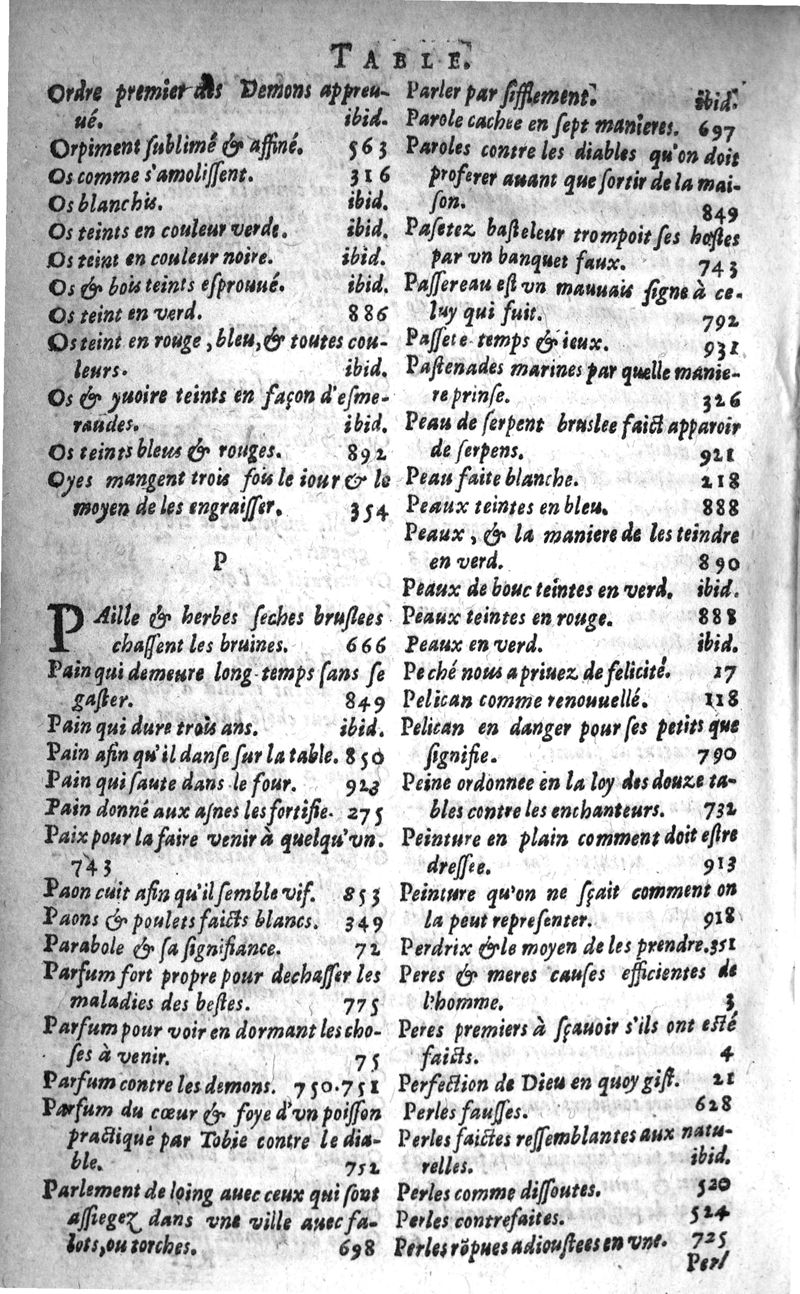 TABLE.
Ordre premier des Demons appreu-
ué. ibid.
Orpiment sublimé & affiné. 563
Os comme s'amolissent. 316
Os blanchis. ibid.
Os teints en couleur verde. ibid.
Os teint en couleur noire. ibid.
Os & bois teints esprouué. ibid.
Os teint en verd. 886
Os teint en rouge, bleu, & toutes cou-
leurs. ibid.
Os & yuoire teints en façon d'esme-
raudes. ibid.
Os teints bleus & rouges. 892
Oyes mangent trois fois le iour & le
moyen de les engraisser. 354
P
PAille & herbes seches bruslees
chassent les bruines. 666
Pain qui demeure long-temps sans se
gaster. 849
Pain qui dure trois ans. ibid.
Pain afin qu'il danse sur la table. 850
Pain qui saute dans le four. 923
Pain donné aux asnes les fortifie. 275
Paix pour la faire venir à quelqu'vn.
743
Paon cuit afin qu'il semble vif. 853
Paons & poulets faicts blancs. 349
Parabole & sa signifiance. 72
Parfum fort propre pour dechasser les
maladies des bestes. 775
Parfum pour voir en dormant les cho-
ses à venir. 75
Parfum contre les demons. 750.751
Parfum du cœur & foye d'vn poisson
practiqué par Tobie contre le dia-
ble. 752
Parlement de loing auec ceux qui sont
assiegez dans vne ville auec fa-
lots, ou torches. 698
Parler par sifflement. ibid.
Parole cachee en sept manieres. 697
Paroles contre les diables qu'on doit
proferer auant que sortir de la mai-
son. 849
Pasetez basteleur trompoit ses hostes
par vn banquet faux. 743
Passereau est vn mauuais signe à ce-
luy qui fuit. 792
Passete-temps & ieux. 931
Pastenades marines par quelle manie-
re prinse. 326
Peau de serpent bruslee faict apparoir
de serpens. 921
Peau faite blanche. 218
Peaux teintes en bleu. 888
Peaux, & la maniere de les teindre
en verd. 890
Peaux de bouc teintes en verd. ibid.
Peaux teintes en rouge. 888
Peaux en verd. ibid.
Peché nous a priuez de felicité. 17
Pelican comme renouuellé. 118
Pelican en danger pour ses petits que
signifie. 790
Peine ordonnee en la loy des douze ta-
bles contre les enchanteurs. 732
Peinture en plain comment doit estre
dressee. 913
Peinture qu'on ne sçait comment on
la peut representer. 918
Perdrix & le moyen de les prendre. 351
Peres & meres causes efficientes de
l'homme. 3
Peres premiers à sçauoir s'ils ont esté
faicts. 4
Perfection de Dieu en quoy gist. 21
Perles fausses. 628
Perles faictes ressemblantes aux natu-
relles. ibid.
Perles comme dissoutes. 520
Perles contrefaites. 524
Perles rõpues adioustees en vne. 725
Perl